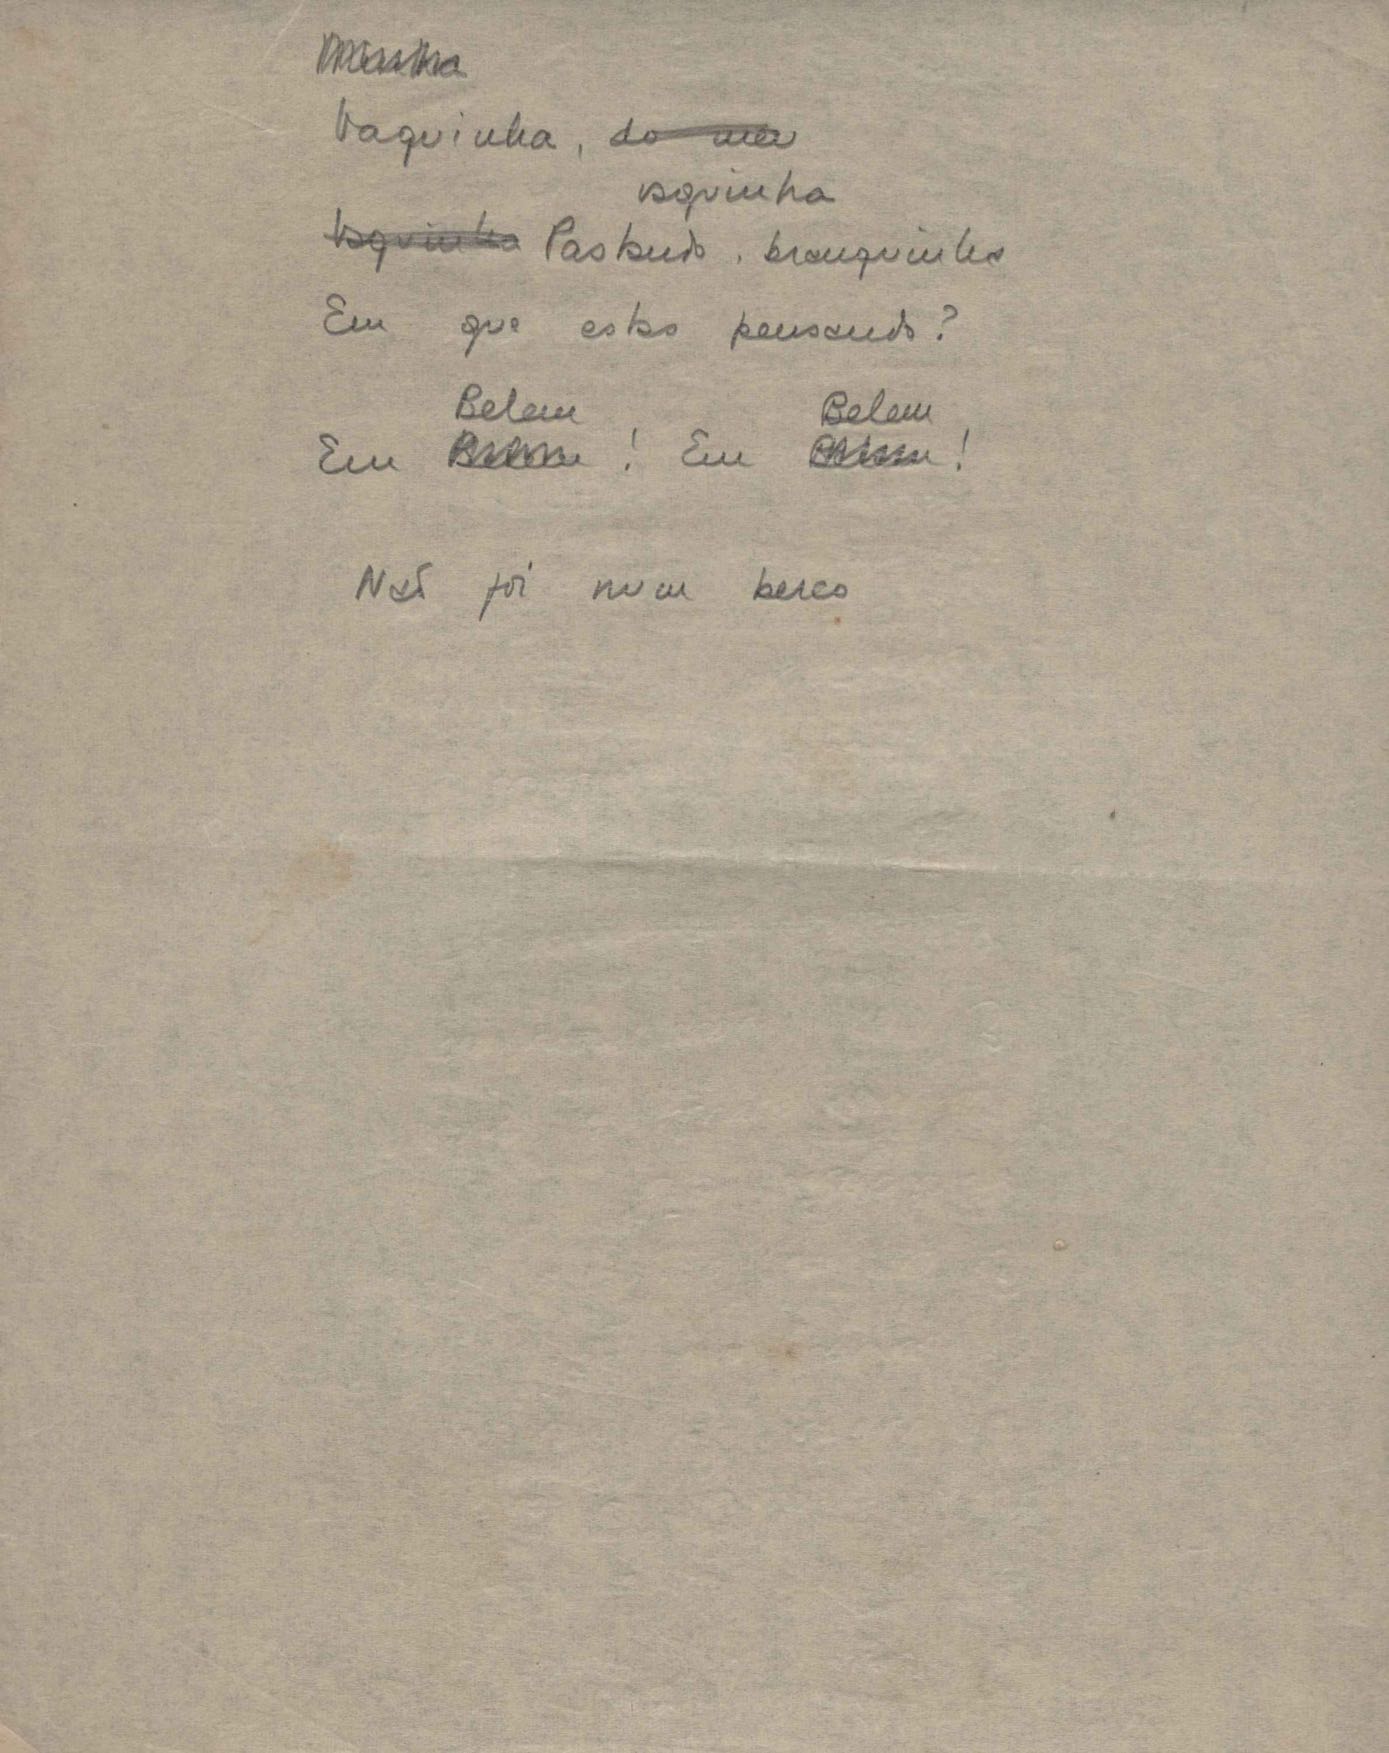 Vaquinha, do meu
vaquinha
Vaquinha Pastando, branquinha
Em que estas pensando?
Belem Belem
Em ! Em !
Não foi num berco